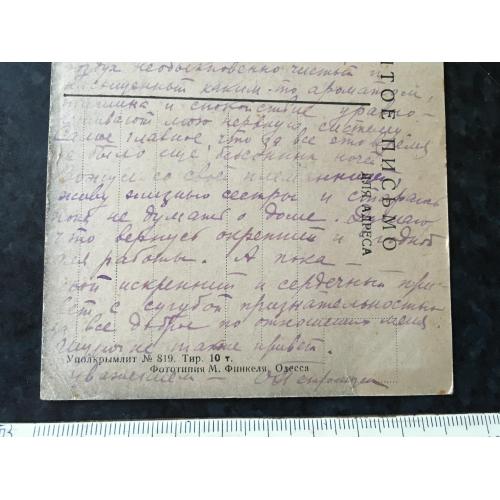 воздух необыкновенно чистый и
насыщенный каким-то ароматом,
тишина и спокойствие уравно-
вешивают мою нервную систему
самое главное что за все это время
не было еще бессонных ночей
со своей племянницей
живу жизнью сестры и стараюсь
пока не думать о доме. Думаю
что вернусь окрепшей и
для работы. А пока —
мой искренний и сердечный при-
вет с сугубой признательностью
за все доброе по отношению меня.
также привет.
с уважением —
ОТКРЫТОЕ ПИСЬМО
ДЛЯ АДРЕСА
Уполкрымлит № 819. Тир. 10 т.
Фототипия М. Финкеля, Одесса